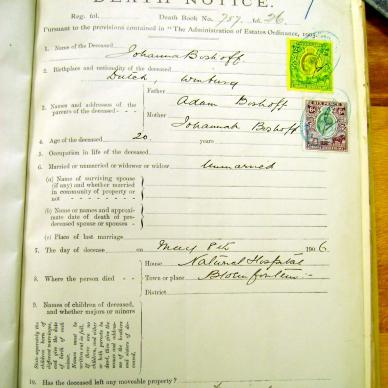 DEATH NOTICE.
Reg. fol. Death Book No. 757. fol. 26.
Pursuant to the provisions contained in "The Administration of Estates Ordinance, 1905."
1. Name of the Deceased Johanna Boshoff
2. Birthplace and nationality of the deceased Dutch Winburg
Father
3. Names and addresses of the parents of the deceased Adam Boshoff
Mother
Johannah Boshoff
4. Age of the deceased 20 years
5. Occupation in life of the deceased
6. Married or unmarried or widower or widow Unmarried
(a) Name of surviving spouse (if any) and whether married in community of property or not
(b) Name or names and approximate date of death of predeceased spouse or spouses
(c) Place of last marriage
7. The day of decease on May 8th 1906
House National Hospital
8. Where the person died Town or place Bloemfontein
District
9. Names of children of deceased, and whether majors or minors
State separately the children born of different marriages, and give the date of birth of each minor.
Names must be written out in full.
If there are no children, and either or both parents be dead, then give the names and addresses of the brothers and sisters of deceased.
10. Has the deceased left any moveable property?